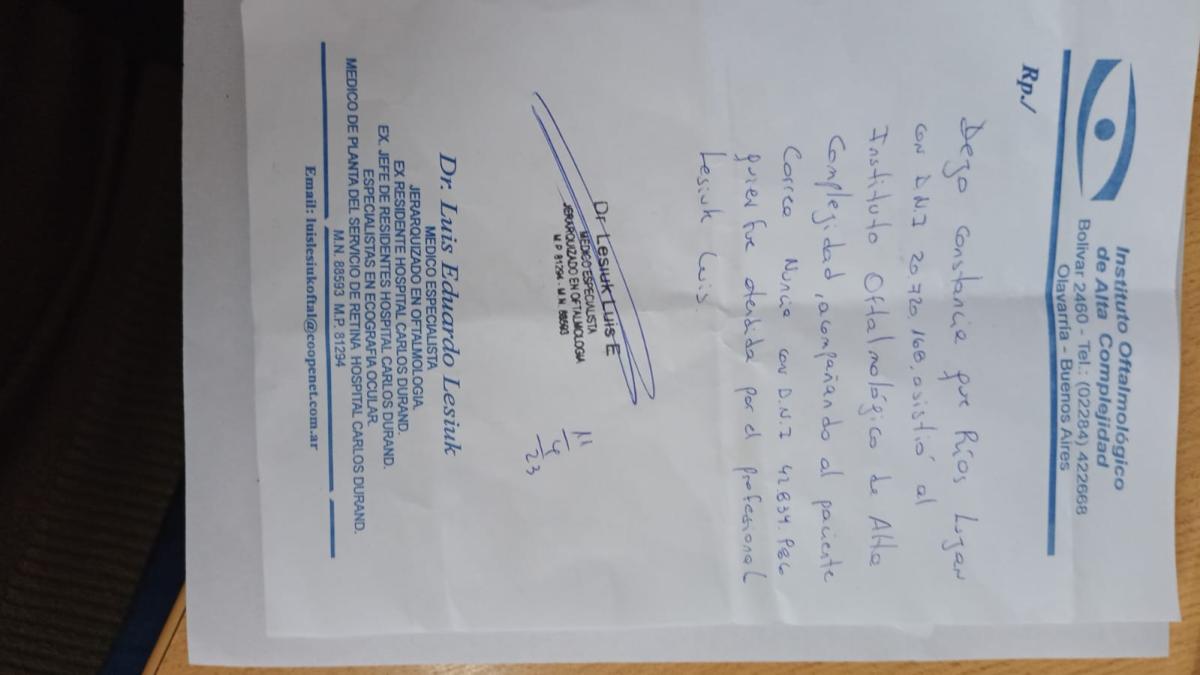 Instituto Oftalmológico
de Alta Complejidad
Bolivar 2460 - Tel.: (02284) 422668
Olavarría - Buenos Aires
Rp./
Dejo constancia que Ríos Lujan
con D.N.I 20.720.168, asistió al
Instituto Oftalmológico de Alta
Complejidad, acompañando al paciente
Correa Nuncia con D.N.I
quien fue atendida por el profesional
Lesiuk Luis.
11/4/23
Dr Lesiuk Luis E
MEDICO ESPECIALISTA
JERARQUIZADO EN OFTALMOLOGIA
M.P 81294 - M.N. 88593
Dr. Luis Eduardo Lesiuk
MEDICO ESPECIALISTA
JERARQUIZADO EN OFTALMOLOGIA.
EX RESIDENTE HOSPITAL CARLOS DURAND.
EX. JEFE DE RESIDENTES HOSPITAL CARLOS DURAND.
ESPECIALISTAS EN ECOGRAFIA OCULAR.
MEDICO DE PLANTA DEL SERVICIO DE RETINA HOSPITAL CARLOS DURAND.
M.N. 88593 M.P. 81294
Email: luislesiukoftal@coopenet.com.ar